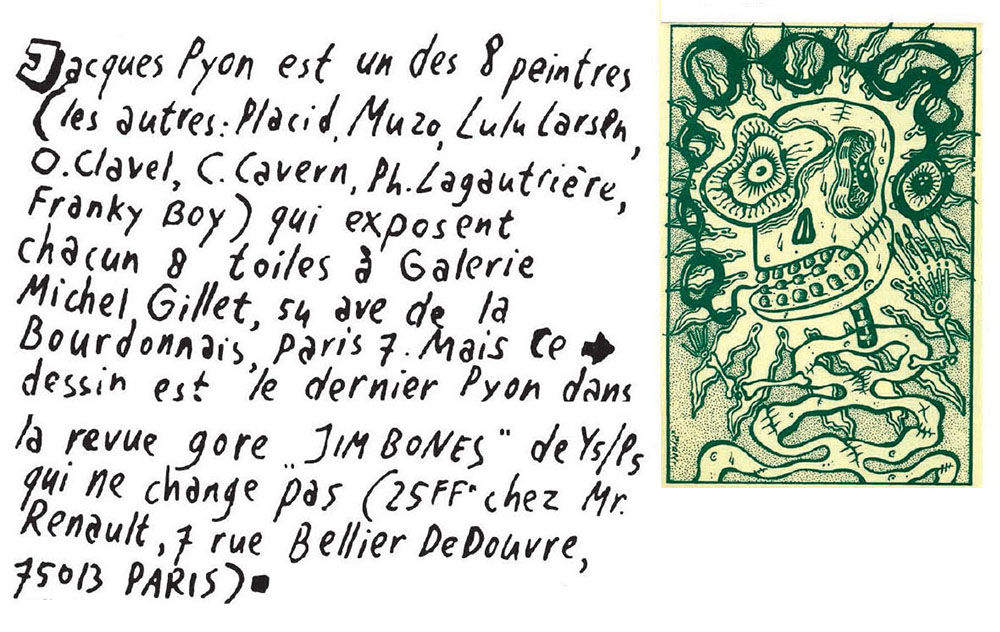 Jacques Pyon est un des 8 peintres
(les autres: Placid, Muzo, Lulu Larsen,
O. Clavel, C. Cavern, Ph. Lagautrière,
Franky Boy) qui exposent
chacun 8 toiles à Galerie
Michel Gillet, 54 ave de la
Bourdonnais, Paris 7. Mais ce ➧
dessin est le dernier Pyon dans
la revue gore "JIM BONES" de Ys/Ps
qui ne change pas (25FF chez Mr.
Renault, 7 rue Bellier DeDouvre,
75013 PARIS)